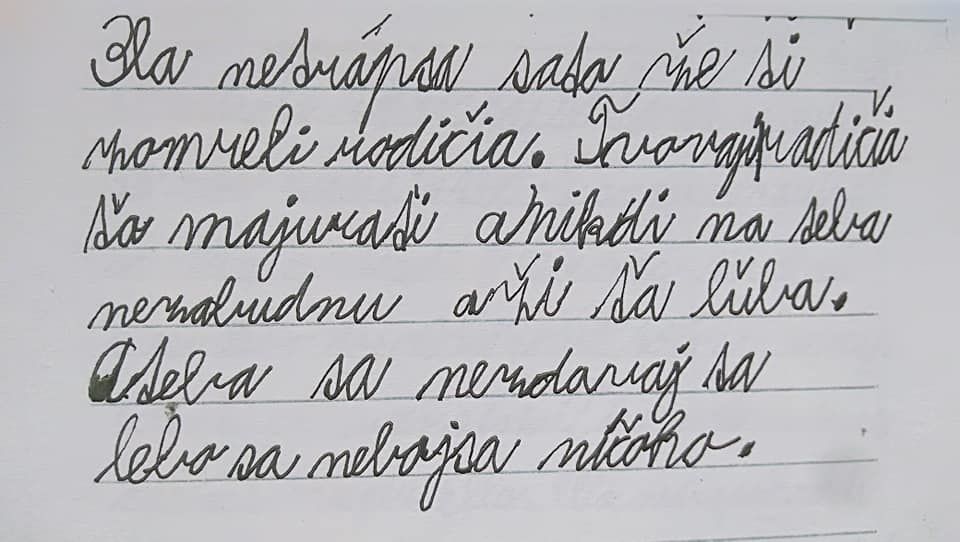 Ela netrápsa sasa že si
zomreli rodičia. Tvovaji radičia
ša majuraśi a nikdi na seba
nezabudnu aži ša lúba.
A seba sa nevzdavaj sa
leba sa nebojsa ničoho.